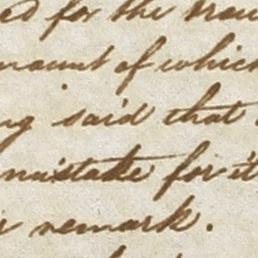 ed for the
mount of which
ng said that
mistake for it
remark.